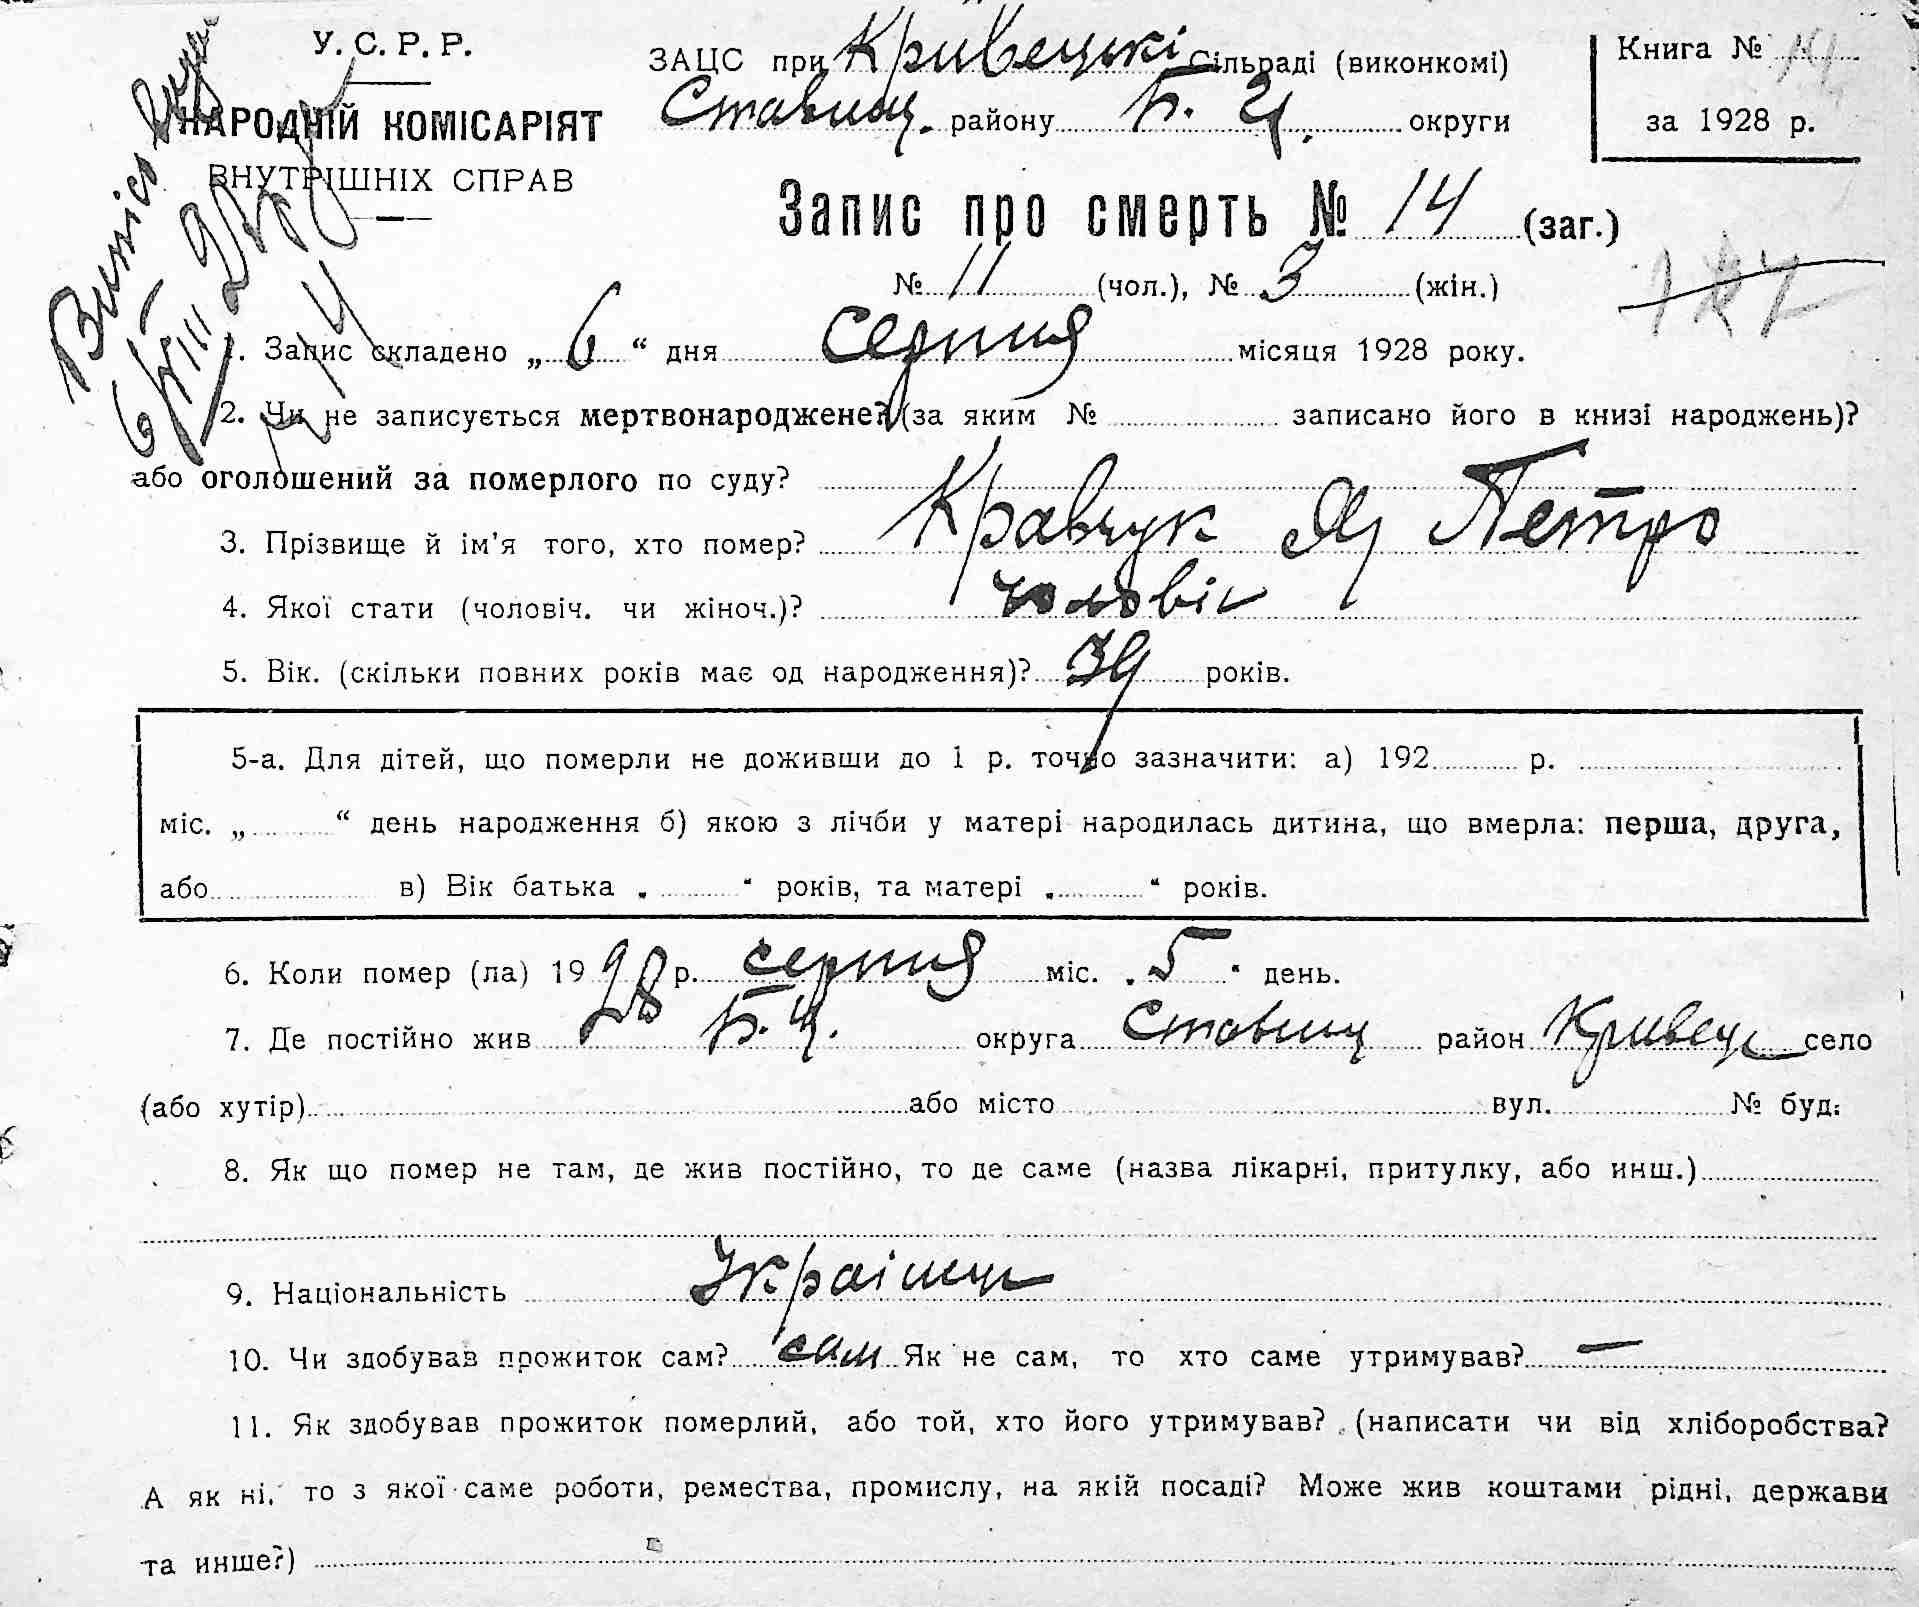 У. С. Р. Р.
НАРОДНІЙ КОМІСАРІЯТ
ВНУТРІШНІХ СПРАВ
ЗАЦС при Кривецькі Сільраді (виконкомі)
Ставищ. району Б. Ц. округи
Книга №
за 1928 р.
Запис про смерть № 14 (заг.)
№ 11 (чол.), № 3 (жін.)
1. Запис складено „ 6 “ дня серпня місяця 1928 року.
2. Чи не записується мертвонароджене? (за яким № записано його в книзі народжень)?
або оголошений за померлого по суду?
3. Прізвище й ім'я того, хто помер? Кравчук Яр Петро
4. Якої стати (чоловіч. чи жіноч.)? чоловік
5. Вік. (скільки повних років має од народження)? 39 років.
5-а. Для дітей, що померли не доживши до 1 р. точно зазначити: а) 192 р.
міс. „ “ день народження б) якою з лічби у матері народилась дитина, що вмерла: перша, друга,
або в) Вік батька „ “ років, та матері „ “ років.
6. Коли помер (ла) 19 28 р. серпня міс. „ 5 “ день.
7. Де постійно жив Б. Ц. округа Ставищ район Кривець село
(або хутір) або місто вул. № буд.
8. Як що помер не там, де жив постійно, то де саме (назва лікарні, притулку, або инш.)
9. Національність Українець
10. Чи здобував прожиток сам? сам Як не сам, то хто саме утримував? —
11. Як здобував прожиток померлий, або той, хто його утримував? (написати чи від хліборобства?
А як ні, то з якої саме роботи, ремества, промислу, на якій посаді? Може жив коштами рідні, держави
та инше?)